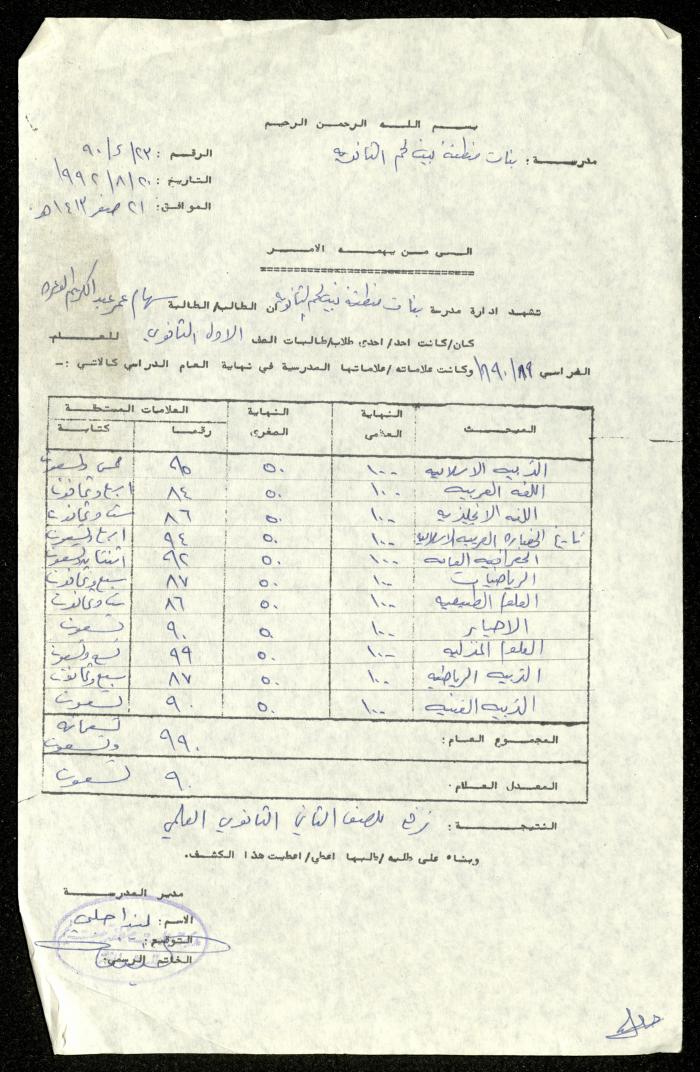 بسم الله الرحمن الرحيم
مدرسة: بنات منطقة بيت لحم الثانوية
الرقم: ٩٠/٤/٢٣
التاريخ: ١٩٩٢/٨/٢٠
الموافق: ٢١ صفر ١٤١٣هـ
الى من يهمه الامر
تشهد ادارة مدرسة بنات منطقة بيت لحم الثانوية ان الطالب/الطالبة سهام عمر عبد الكريم
كان/كانت احد/احدى طلاب/طالبات الصف الاول الثانوي للعام
الدراسي ٩٠/٨٩ وكانت علاماته/علاماتها المدرسية في نهاية العام الدراسي كالاتي :-
المبحث النهاية العظمى النهاية الصغرى العلامات المستحقة رقما كتابة
التربيه الاسلاميه ١٠٠ ٥٠ ٩٥ خمس وتسعون
اللغه العربيه ١٠٠ ٥٠ ٨٤ اربع وثمانون
اللغه الانجليزيه ١٠٠ ٥٠ ٨٦ ست وثمانون
تاريخ الحضاره العربيه الاسلاميه ١٠٠ ٥٠ ٩٤ اربع وتسعون
الجغرافيه العامه ١٠٠ ٥٠ ٩٢ اثنتان وتسعون
الرياضيات ١٠٠ ٥٠ ٨٧ سبع وثمانون
العلوم الطبيعيه ١٠٠ ٥٠ ٨٦ ست وثمانون
الاحياء ١٠٠ ٥٠ ٩٠ تسعون
العلوم المنزليه ١٠٠ ٥٠ ٩٩ تسع وتسعون
التربيه الرياضيه ١٠٠ ٥٠ ٨٧ سبع وثمانون
التربيه الفنيه ١٠٠ ٥٠ ٩٠ تسعون
المجموع العام: ٩٩٠ تسعمائه وتسعون
المعدل العام: ٩٠ تسعون
النتيجة: ترفع للصف الثاني الثانوي العلمي
وبناء على طلبه/طلبها اعطي/اعطيت هذا الكشف.
مدير المدرسة
الاسم:
التوقيع:
الخاتم الرسمي: